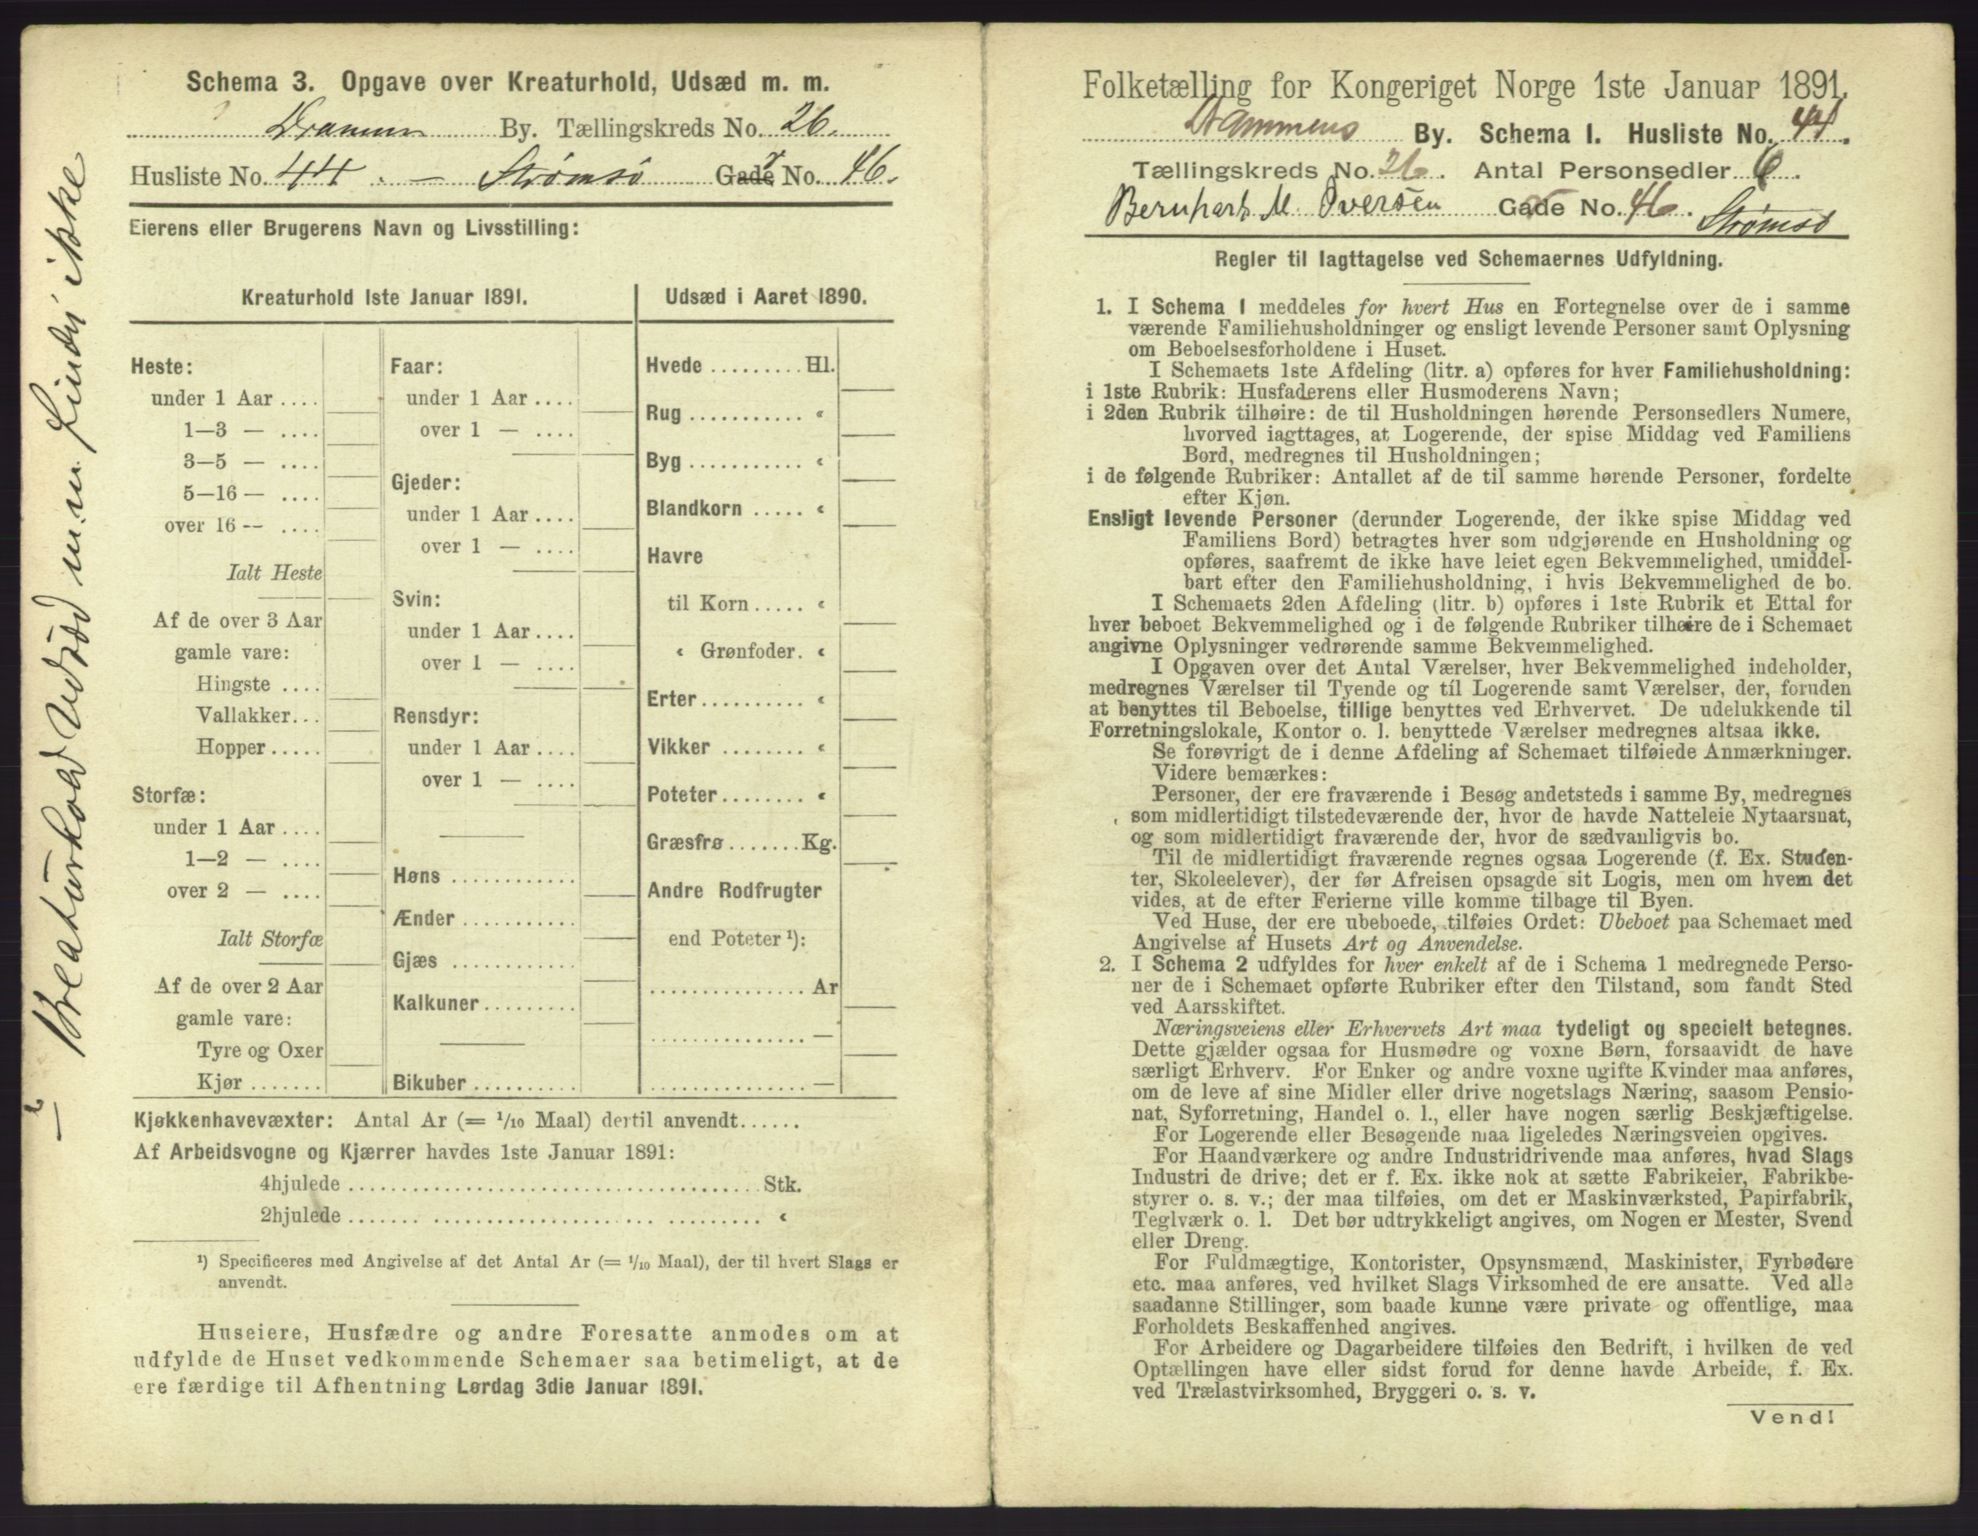 Schema 3. Opgave over Kreaturhold, Udsæd m. m.
Drammen By. Tællingskreds No. 26.
Husliste No. 44. — Strømsö Gade No. 46.
Eierens eller Brugerens Navn og Livsstilling:
Kreaturhold 1ste Januar 1891.
Heste:
under 1 Aar ....
1—3 — ....
3—5 — ....
5—16 — ....
over 16 -- ....
Ialt Heste
Af de over 3 Aar
gamle vare:
Hingste ....
Vallakker...
Hopper.....
Storfæ:
under 1 Aar ....
1—2 — ....
over 2 — ....
Ialt Storfæ
Af de over 2 Aar
gamle vare:
Tyre og Oxer
Kjør .......
Faar:
under 1 Aar ....
over 1 — ....
Gjeder:
under 1 Aar ....
over 1 — ....
Svin:
under 1 Aar ....
over 1 — ....
Rensdyr:
under 1 Aar ....
over 1 — ....
Høns ............
Ænder ...........
Gjæs ............
Kalkuner.........
Bikuber ..........
Udsæd i Aaret 1890.
Hvede ......... Hl.
Rug ........... «
Byg ........... «
Blandkorn ..... «
Havre
til Korn ..... «
« Grønfoder. «
Erter.......... «
Vikker ........ «
Poteter........ «
Græsfrø.......Kg.
Andre Rodfrugter
end Poteter ¹):
............... Ar
............... —
............... —
Kjøkkenhavevæxter: Antal Ar (= 1/10 Maal) dertil anvendt......
Af Arbeidsvogne og Kjærrer havdes 1ste Januar 1891:
4hjulede ........................................ Stk.
2hjulede ........................................ «
¹) Specificeres med Angivelse af det Antal Ar (= 1/10 Maal), der til hvert Slags er
anvendt.
Huseiere, Husfædre og andre Foresatte anmodes om at
udfylde de Huset vedkommende Schemaer saa betimeligt, at de
ere færdige til Afhentning Lørdag 3die Januar 1891.
— Kreaturhold Udsæd m.m. findes ikke
Folketælling for Kongeriget Norge 1ste Januar 1891.
Drammens By. Schema I. Husliste No. 44.
Tællingskreds No. 26. Antal Personsedler 6.
Bernhart M. Iversen Gade No. 46. Strømsö
Regler til Iagttagelse ved Schemaernes Udfyldning.
1. I Schema 1 meddeles for hvert Hus en Fortegnelse over de i samme
værende Familiehusholdninger og ensligt levende Personer samt Oplysning
om Beboelsesforholdene i Huset.
I Schemaets 1ste Afdeling (litr. a) opføres for hver Familiehusholdning:
i 1ste Rubrik: Husfaderens eller Husmoderens Navn;
i 2den Rubrik tilhøire: de til Husholdningen hørende Personsedlers Numere,
hvorved iagttages, at Logerende, der spise Middag ved Familiens
Bord, medregnes til Husholdningen;
i de følgende Rubriker: Antallet af de til samme hørende Personer, fordelte
efter Kjøn.
Ensligt levende Personer (derunder Logerende, der ikke spise Middag ved
Familiens Bord) betragtes hver som udgjørende en Husholdning og
opføres, saafremt de ikke have leiet egen Bekvemmelighed, umiddel-
bart efter den Familiehusholdning, i hvis Bekvemmelighed de bo.
I Schemaets 2den Afdeling (litr. b) opføres i 1ste Rubrik et Ettal for
hver beboet Bekvemmelighed og i de følgende Rubriker tilhøire de i Schemaet
angivne Oplysninger vedrørende samme Bekvemmelighed.
I Opgaven over det Antal Værelser, hver Bekvemmelighed indeholder,
medregnes Værelser til Tyende og til Logerende samt Værelser, der, foruden
at benyttes til Beboelse, tillige benyttes ved Erhvervet. De udelukkende til
Forretningslokale, Kontor o. l. benyttede Værelser medregnes altsaa ikke.
Se forøvrigt de i denne Afdeling af Schemaet tilføiede Anmærkninger.
Videre bemærkes:
Personer, der ere fraværende i Besøg andetsteds i samme By, medregnes
som midlertidigt tilstedeværende der, hvor de havde Natteleie Nytaarsnat,
og som midlertidigt fraværende der, hvor de sædvanligvis bo.
Til de midlertidigt fraværende regnes ogsaa Logerende (f. Ex. Studen-
ter, Skoleelever), der før Afreisen opsagde sit Logis, men om hvem det
vides, at de efter Ferierne ville komme tilbage til Byen.
Ved Huse, der ere ubeboede, tilføies Ordet: Ubeboet paa Schemaet med
Angivelse af Husets Art og Anvendelse.
2. I Schema 2 udfyldes for hver enkelt af de i Schema 1 medregnede Perso-
ner de i Schemaet opførte Rubriker efter den Tilstand, som fandt Sted
ved Aarsskiftet.
Næringsveiens eller Erhvervets Art maa tydeligt og specielt betegnes.
Dette gjælder ogsaa for Husmødre og voxne Børn, forsaavidt de have
særligt Erhverv. For Enker og andre voxne ugifte Kvinder maa anføres,
om de leve af sine Midler eller drive nogetslags Næring, saasom Pensio-
nat, Syforretning, Handel o. l., eller have nogen særlig Beskjæftigelse.
For Logerende eller Besøgende maa ligeledes Næringsveien opgives.
For Haandværkere og andre Industridrivende maa anføres, hvad Slags
Industri de drive; det er f. Ex. ikke nok at sætte Fabrikeier, Fabrikbe-
styrer o. s. v.; der maa tilføies, om det er Maskinværksted, Papirfabrik,
Teglværk o. l. Det bør udtrykkeligt angives, om Nogen er Mester, Svend
eller Dreng.
For Fuldmægtige, Kontorister, Opsynsmænd, Maskinister, Fyrbødere
etc. maa anføres, ved hvilket Slags Virksomhed de ere ansatte. Ved alle
saadanne Stillinger, som baade kunne være private og offentlige, maa
Forholdets Beskaffenhed angives.
For Arbeidere og Dagarbeidere tilføies den Bedrift, i hvilken de ved
Optællingen have eller sidst forud for denne havde Arbeide, f. Ex.
ved Trælastvirksomhed, Bryggeri o. s. v.
Vend!